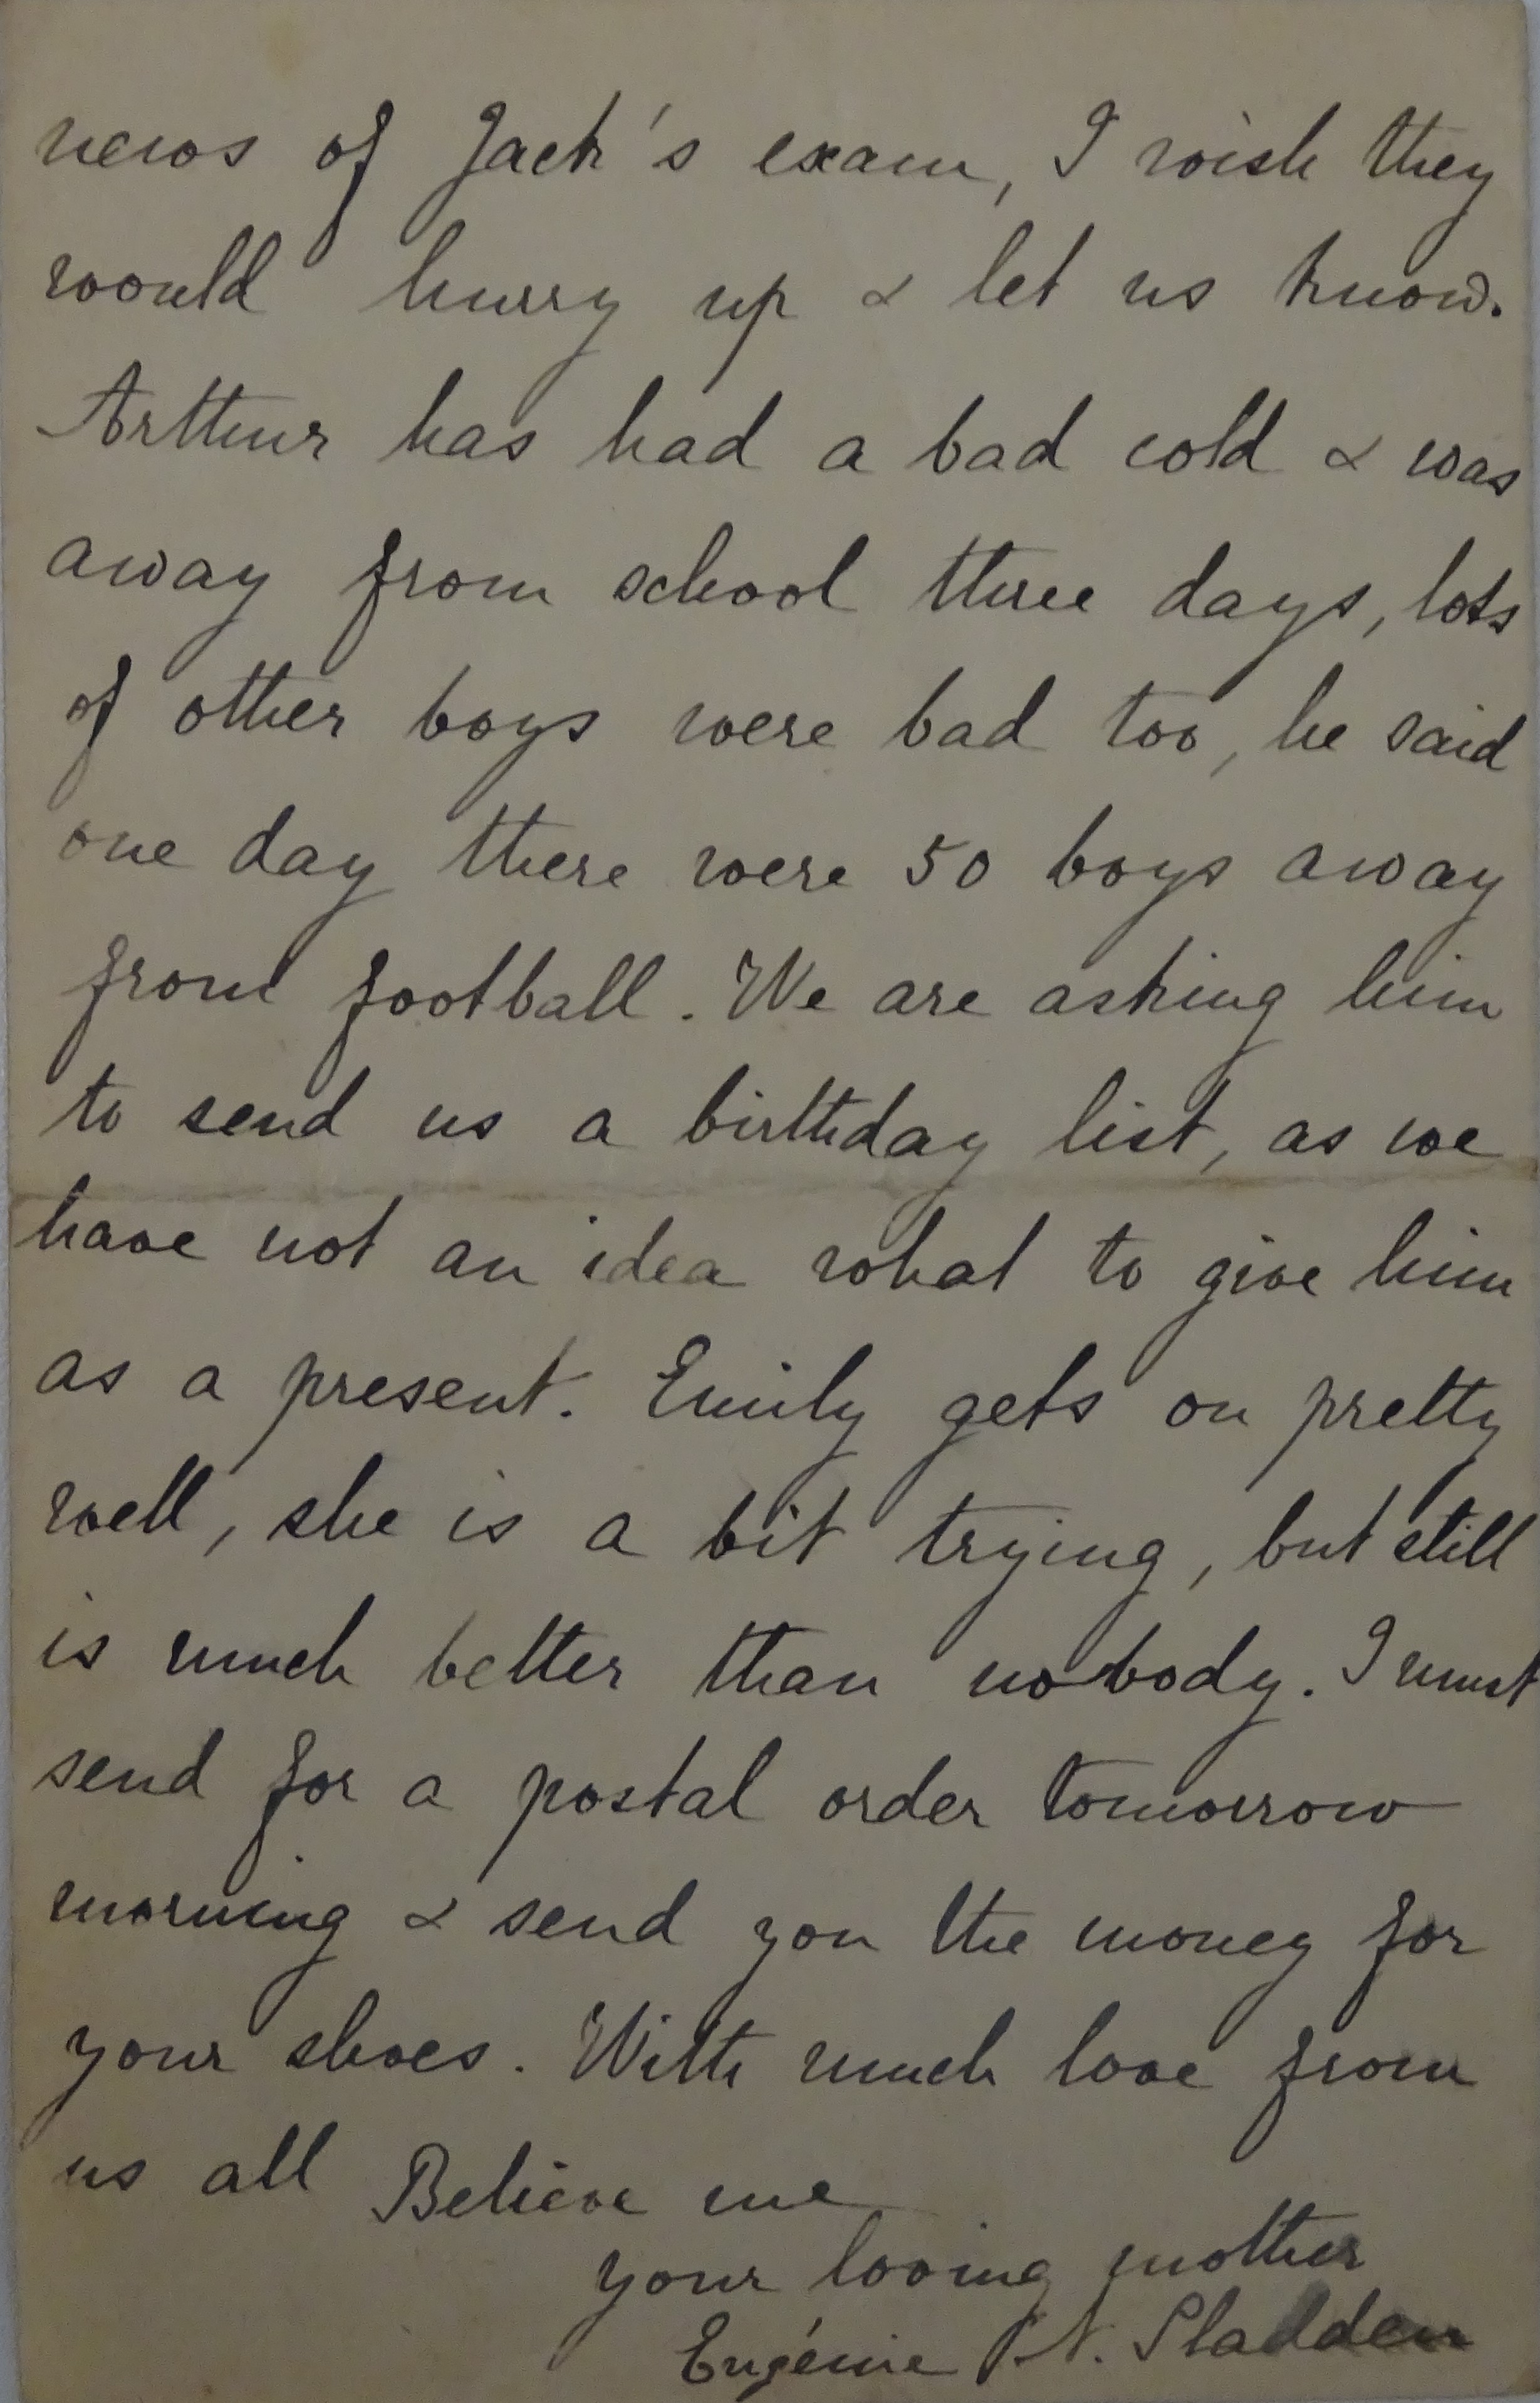 news of Jack's exam, I wish they
would hurry up & let us know.
Arthur has had a bad cold & was
away from school three days, lots
of other boys were bad too, he said
one day there were 50 boys away
from football. We are asking him
to send us a birthday list, as we
have not an idea what to give him
as a present. Emily gets on pretty
well, she is a bit trying, but still
is much better than nobody. I must
send for a postal order tomorrow
morning & send you the money for
your shoes. With much love from
us all Believe me
your loving mother
Eugénie N. Sladden